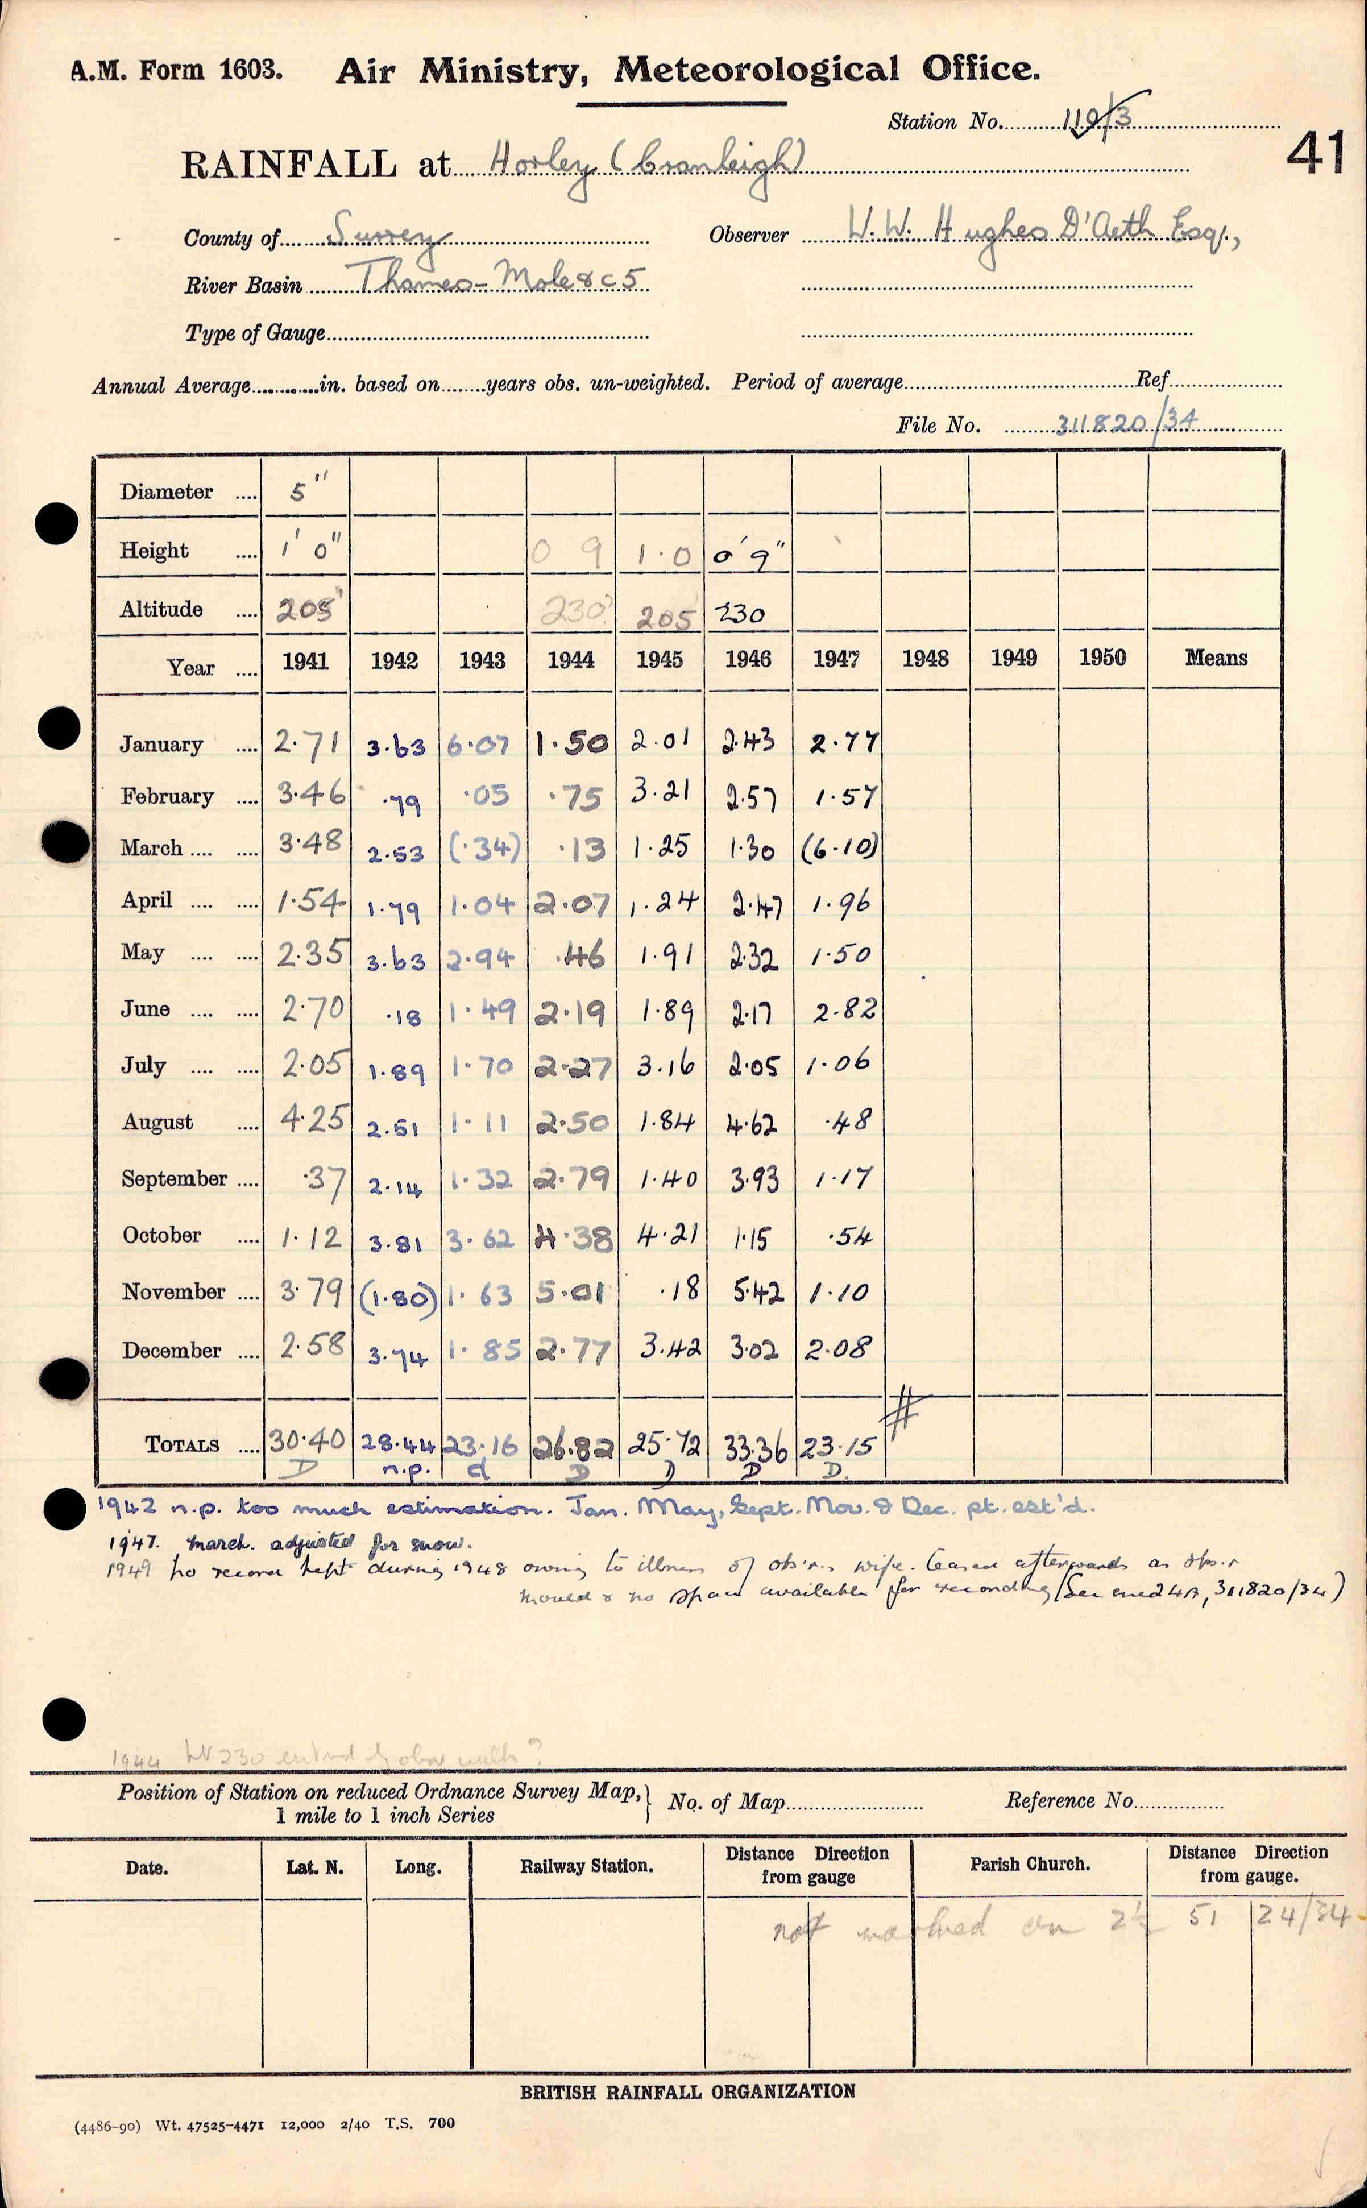 A.M. Form 1603. Air Ministry, Meteorological Office.
Station No. 110/3
41
RAINFALL at Horley (Cranleigh)
County of Surrey Observer W.W. Hughes D'Aeth Esq.,
River Basin Thames - Mole & C 5
Type of Gauge
Annual Average in. based on years obs. un-weighted. Period of average Ref
File No. 311820/34
Diameter 5"
Height 1' 0" 0 9 1.0 0' 9"
Altitude 205' 230' 205 230
Year 1941 1942 1943 1944 1945 1946 1947 1948 1949 1950 Means
January 2.71 3.63 6.07 1.50 2.01 2.43 2.77
February 3.46 .79 .05 .75 3.21 2.57 1.57
March 3.48 2.53 (.34) .13 1.25 1.30 (6.10)
April 1.54 1.79 1.04 2.07 1.24 2.47 1.96
May 2.35 3.63 2.94 .46 1.91 2.32 1.50
June 2.70 .18 1.49 2.19 1.89 2.17 2.82
July 2.05 1.89 1.70 2.27 3.16 2.05 1.06
August 4.25 2.51 1.11 2.50 1.84 4.62 .48
September .37 2.14 1.32 2.79 1.40 3.93 1.17
October 1.12 3.81 3.62 4.38 4.21 1.15 .54
November 3.79 (1.80) 1.63 5.01 .18 5.42 1.10
December 2.58 3.74 1.85 2.77 3.42 3.02 2.08
TOTALS 30.40 28.44 23.16 26.82 25.72 33.36 23.15 #
D n.p. d D D D D.
1942 n.p. too much estimation. Jan. May, Sept. Nov. & Dec. pt. est'd.
1947. March. adjusted for snow.
1949 No record kept during 1948 owing to illness of obs'rs. wife. Ceased afterwards as obs'r
moved & no space available for recording (See encl 24A, 311820/34)
1944 230 entered by obsr
Position of Station on reduced Ordnance Survey Map, } No. of Map Reference No.
1 mile to 1 inch Series
Date. Lat. N. Long. Railway Station. Distance Direction from gauge Parish Church. Distance Direction from gauge.
not marked on 2½ 51 24/34
BRITISH RAINFALL ORGANIZATION
(4486-90) Wt. 47525-4471 12,000 2/40 T.S. 700